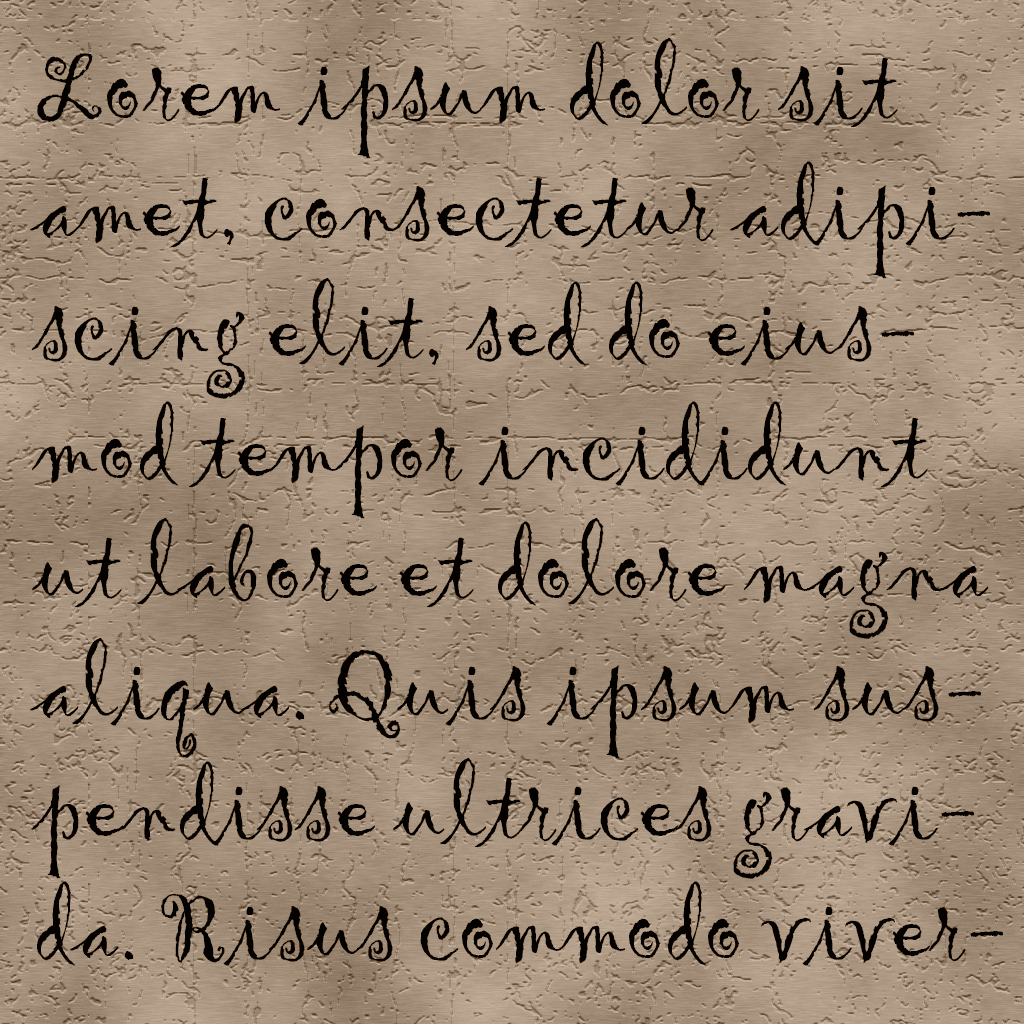 Lorem ipsum dolor sit
amet, consectetur adipi-
scing elit, sed do eius-
mod tempor incididunt
ut labore et dolore magna
aliqua. Quis ipsum sus-
pendisse ultrices gravi-
da. Risus commodo viver-